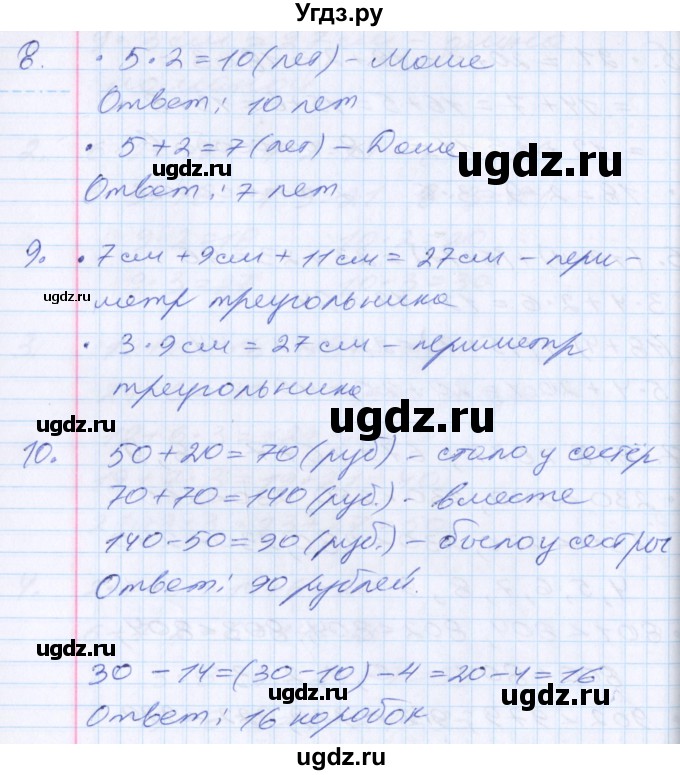 Угдз.ру
8. • 5 • 2 = 10 (лет) - Маше
Ответ: 10 лет
• 5 + 2 = 7 (лет) - Даше
ugdz.ru
Ответ: 7 лет
9. • 7 см + 9 см + 11 см = 27 см - пери-
ugdz.ru
метр треугольника
• 3 • 9 см = 27 см - периметр
треугольника
ugdz.ru
ugdz.ru
10. 50 + 20 = 70 (руб) - стало у сестёр
70 + 70 = 140 (руб.) - вместе
140 - 50 = 90 (руб.) - было у сестры
ugdz.ru
Ответ: 90 рублей.
ugdz.ru
30 - 14 = (30 - 10) - 4 = 20 - 4 = 16
ugdz.ru
ugdz.ru
Ответ: 16 коробок
ugdz.ru
ugdz.ru